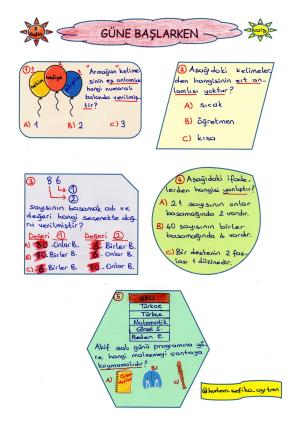 GÜNE BAŞLARKEN
1
"Armağan" kelime-
sinin eş anlamlısı
hangi numaralı
balonda verilmiş-
tir?
hediye
A) 1 B) 2 C) 3
2 Aşağıdaki kelimeler-
den hangisinin zıt an-
lamlısı yoktur?
A) sıcak
B) öğretmen
C) kısa
3 86
1
2
sayısının basamak adı ve
değeri hangi seçenekte doğ-
ru verilmiştir?
Değeri 1 Değeri 2
A) 80 - Onlar B. 6 Birler B.
B) 80 - Onlar B. 6 Birler B.
C) 6 Birler B. 80 Onlar B.
4 Aşağıdaki ifade-
lerden hangisi yanlıştır?
A) 21 sayısının onlar
basamağında 2 vardır.
B) 40 sayısının birler
basamağında 4 vardır.
C) Bir destenin 2 faz-
lası 1 düzinedir.
5
SALI
Türkçe
Türkçe
Matematik
Görsel S.
Beden E.
Akif salı günü programına gö-
re hangi malzemeyi çantaya
koymamalıdır?
A) B) C)
@hatem.sefika_ogretmen